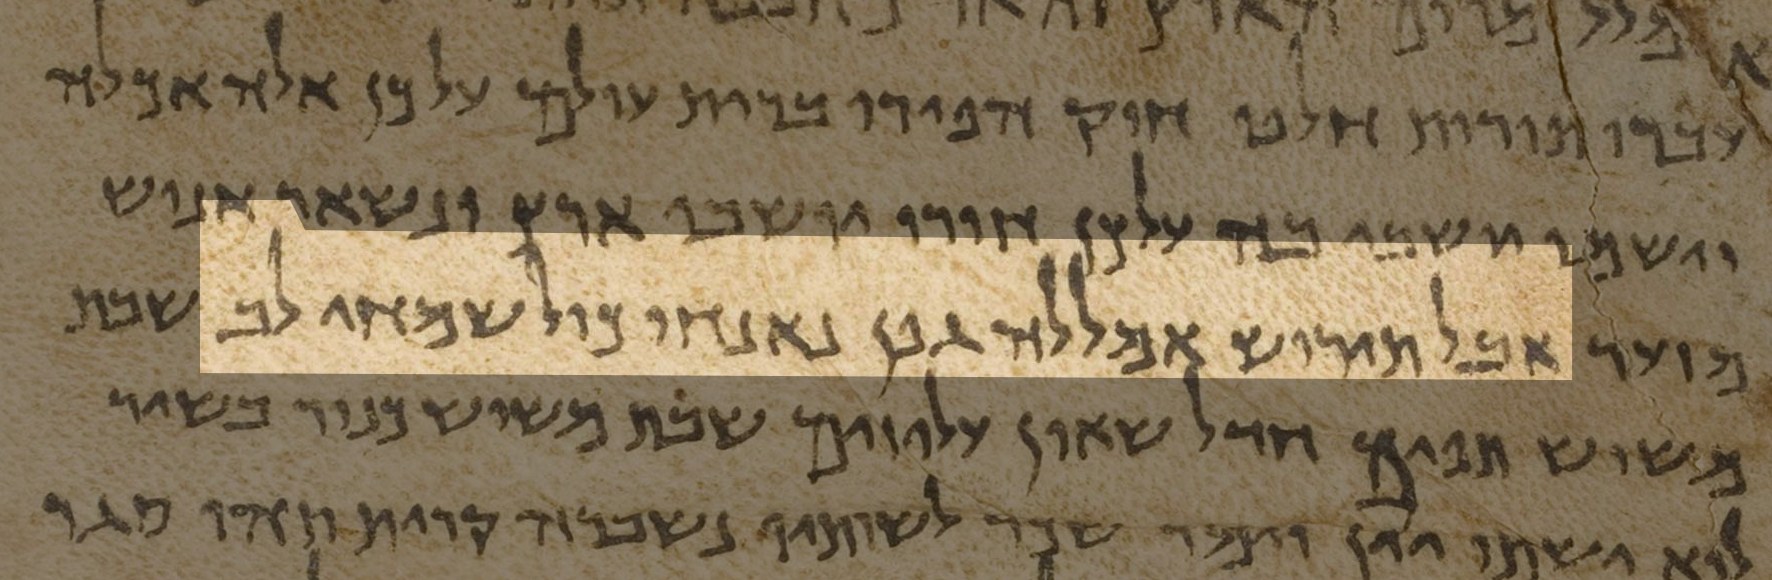 עברו תורות חלפו חוק הפירו ברית עולם על כן אלה אכלה
וישמו ישבי בה על כן חורו יושבי ארץ ונשאר אנוש
מזער אבל תירוש אמללה גפן נאנחו כול שמחי לב שבת
משוש תופים חדל שאון עליזים שבת משוש כנור בשיר
לוא ישתו יין וימר שכר לשותיו נשברה קרית תהו סגר